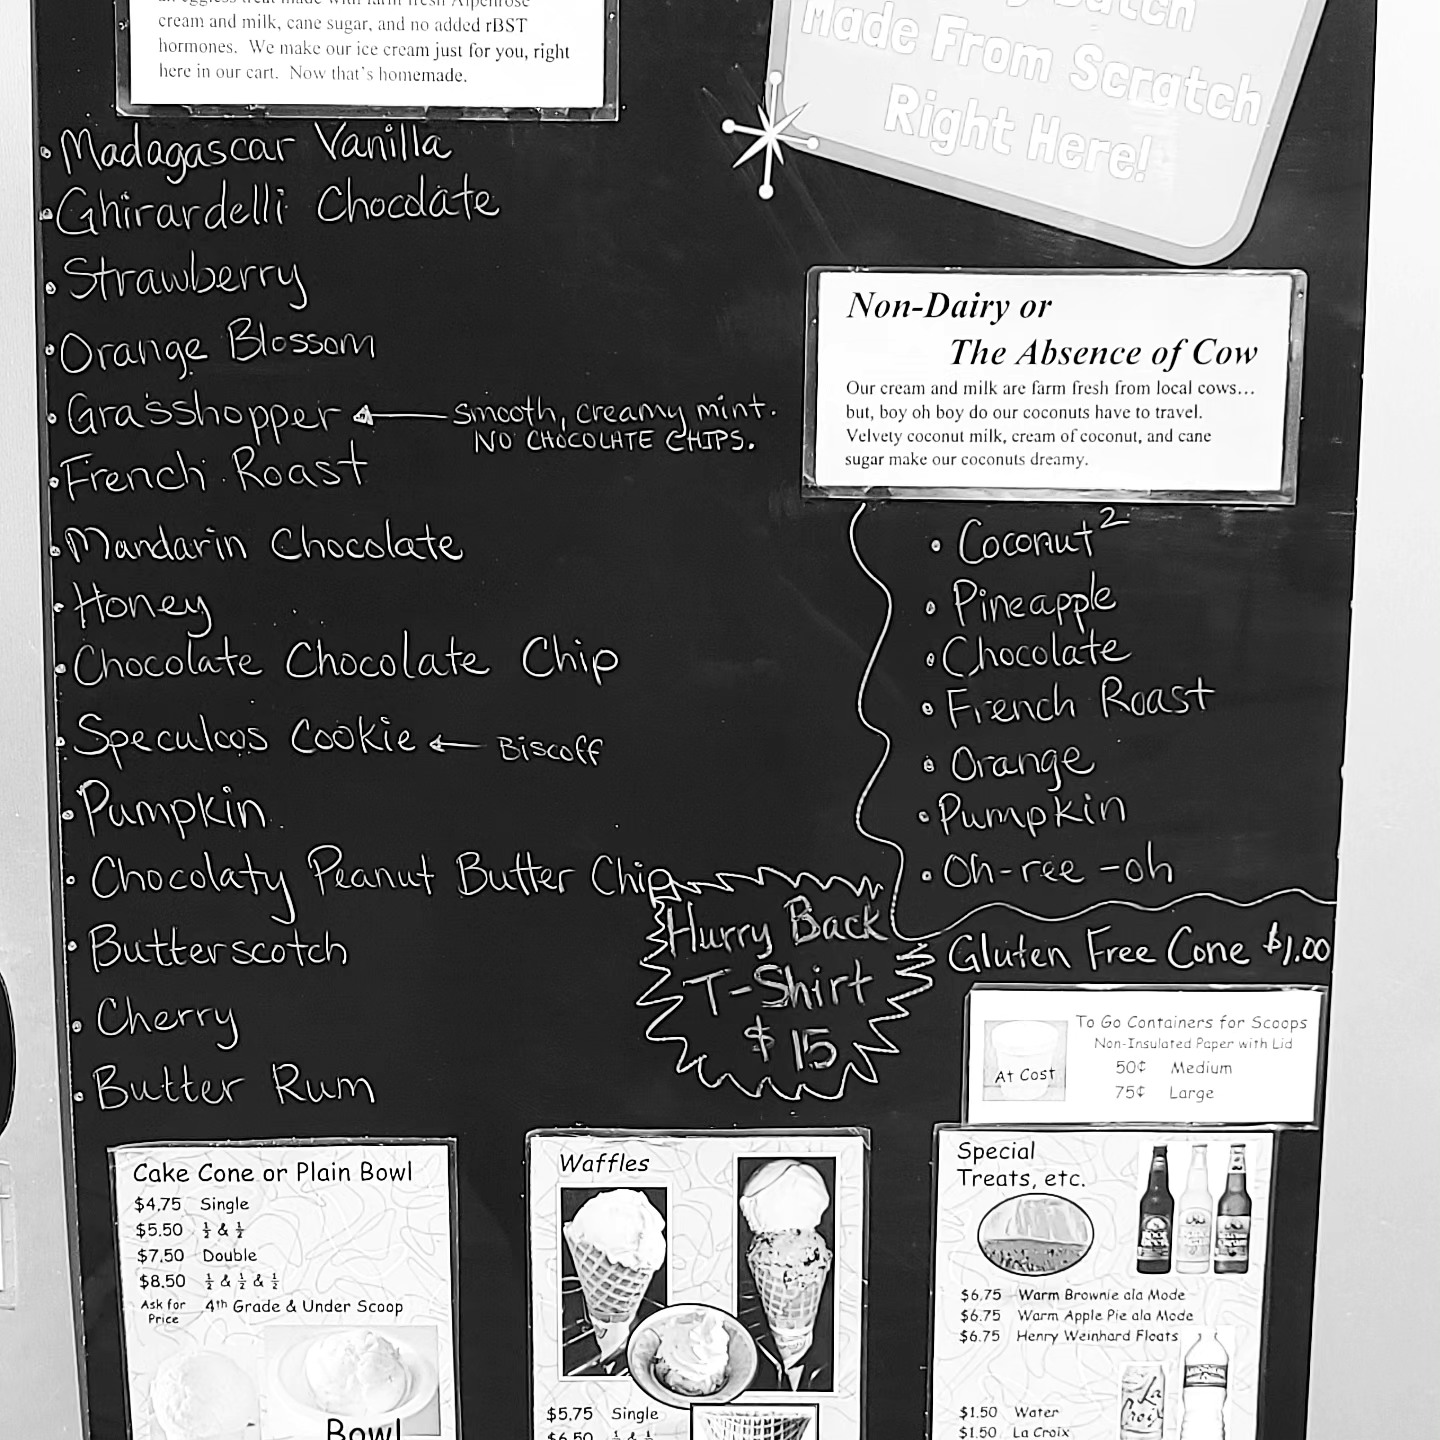 an eggless treat made with farm fresh Alpenrose
cream and milk, cane sugar, and no added rBST
hormones. We make our ice cream just for you, right
here in our cart. Now that's homemade.
Batch
Made From Scratch
Right Here!
• Madagascar Vanilla
• Ghirardelli Chocolate
• Strawberry
• Orange Blossom
• Grasshopper ← smooth, creamy mint.
NO CHOCOLATE CHIPS.
• French Roast
• Mandarin Chocolate
• Honey
• Chocolate Chocolate Chip
• Speculoos Cookie ← Biscoff
• Pumpkin
• Chocolaty Peanut Butter Chip
• Butterscotch
• Cherry
• Butter Rum
Non-Dairy or
The Absence of Cow
Our cream and milk are farm fresh from local cows...
but, boy oh boy do our coconuts have to travel.
Velvety coconut milk, cream of coconut, and cane
sugar make our coconuts dreamy.
• Coconut²
• Pineapple
• Chocolate
• French Roast
• Orange
• Pumpkin
• Oh-ree-oh
Hurry Back
T-Shirt
$15
Gluten Free Cone $1.00
To Go Containers for Scoops
Non-Insulated Paper with Lid
50¢ Medium
75¢ Large
At Cost
Cake Cone or Plain Bowl
$4.75 Single
$5.50 ½ & ½
$7.50 Double
$8.50 ½ & ½ & ½
Ask for Price 4th Grade & Under Scoop
Bowl
Waffles
$5.75 Single
$6.50 ½ & ½
Special
Treats, etc.
$6.75 Warm Brownie ala Mode
$6.75 Warm Apple Pie ala Mode
$6.75 Henry Weinhard Floats
La
Croix
$1.50 Water
$1.50 La Croix